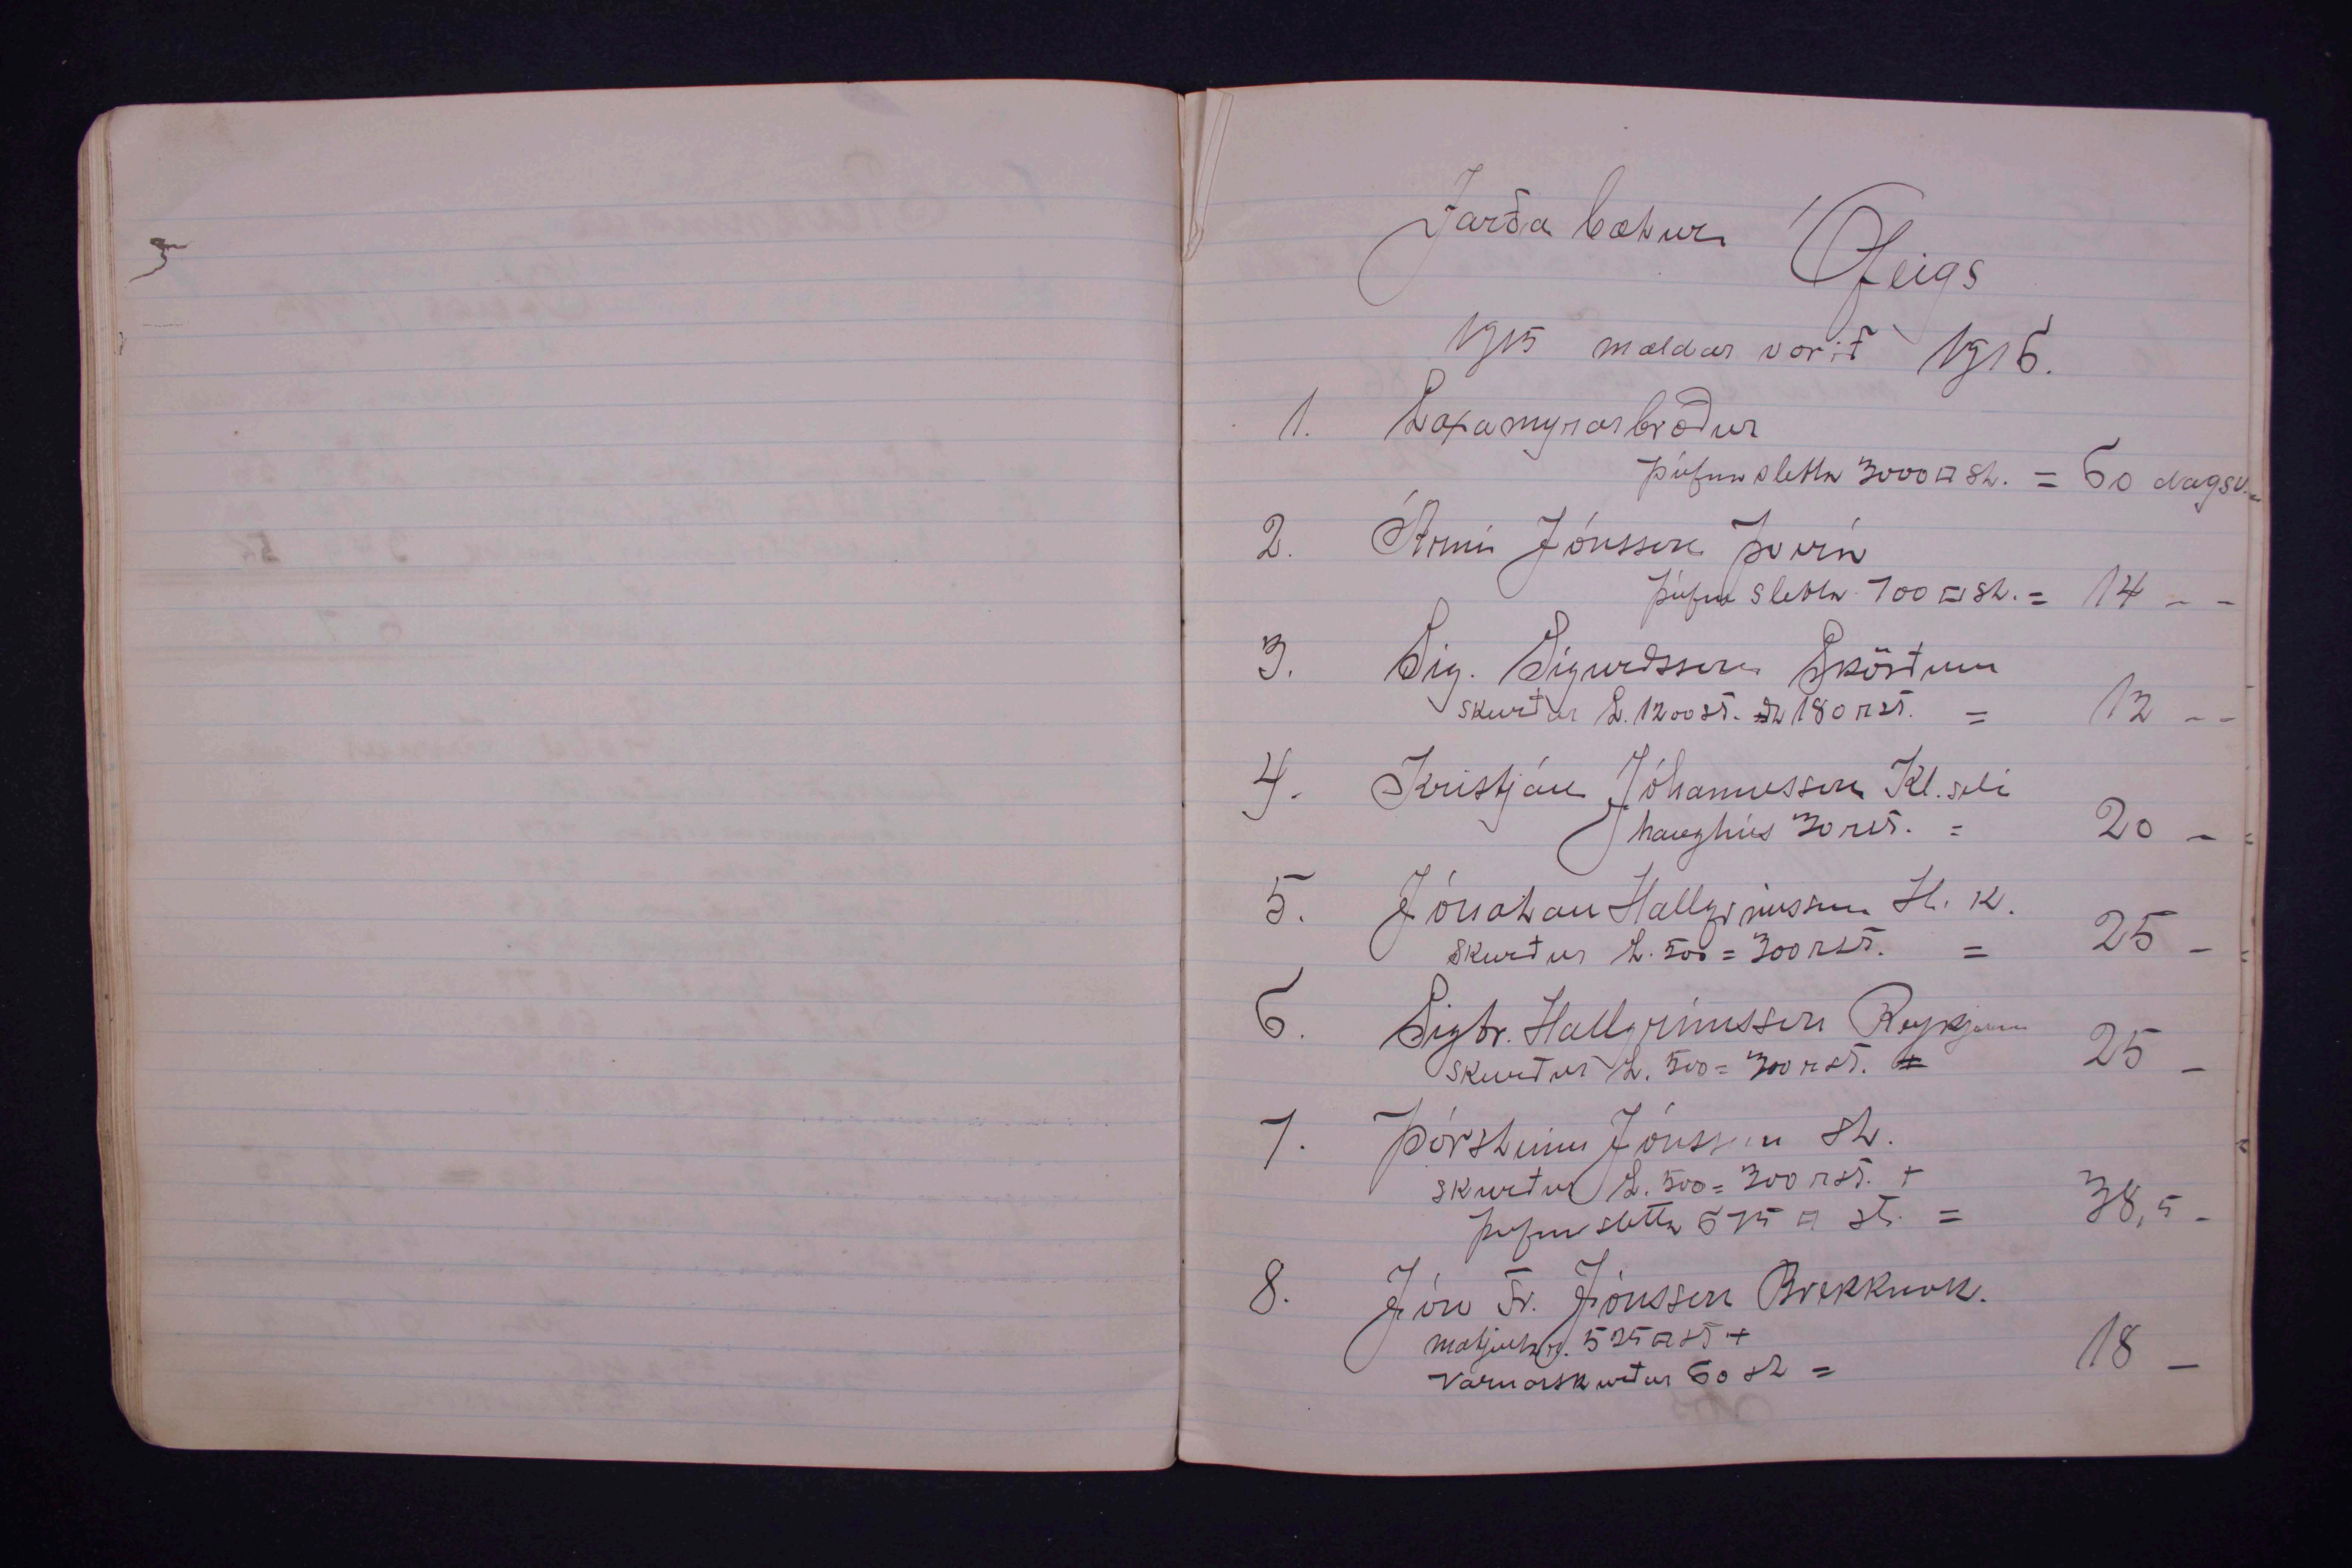 Jarða bætur Ófeigs
1915 mældar vorið 1916.
1. Laxamyrarbræður
þúfna sletta 3000 □ st. = 60 dagsv.
2. Árni Jónsson Þverá
þúfna sletta 700 □ st. = 14 - -
3. Sig. Sigurðsson Skörðum
skurður L. 1200 st. 180 rst. = 12 - -
4. Kristján Jóhannesson Kl.seli
haughús 30 rst. = 20 - -
5. Jónatan Hallgrímsson H. K.
skurður L. 500 = 300 rst. = 25 - -
6. Sigtr. Hallgrímsson Reykjum
skurður L. 500 = 300 rst. = 25 -
7. Þórsteinn Jónsson St.
skurður L. 500 = 300 rst. +
þúfna sletta 675 □ st. = 38,5 -
8. Jón Fr. Jónsson Brekknak.
matjurtag. 525 □ st +
Varnarskurður 60 st = 18 -